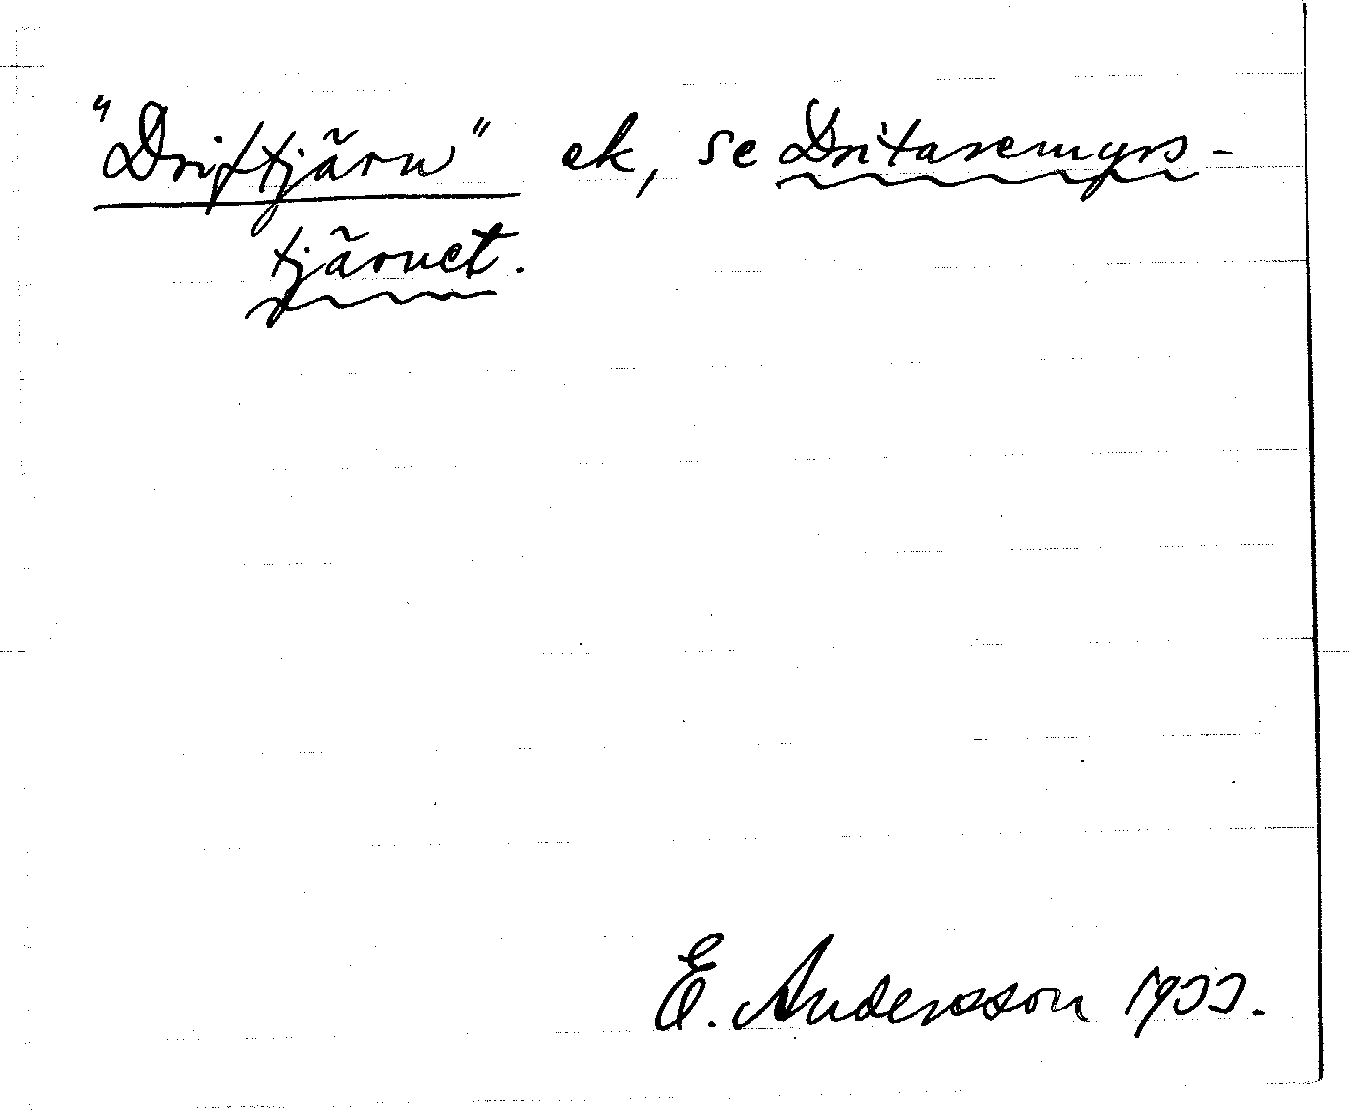 "Driftjärn" ek, se Dritaremyrs-
tjärnet.
E. Andersson 1933.